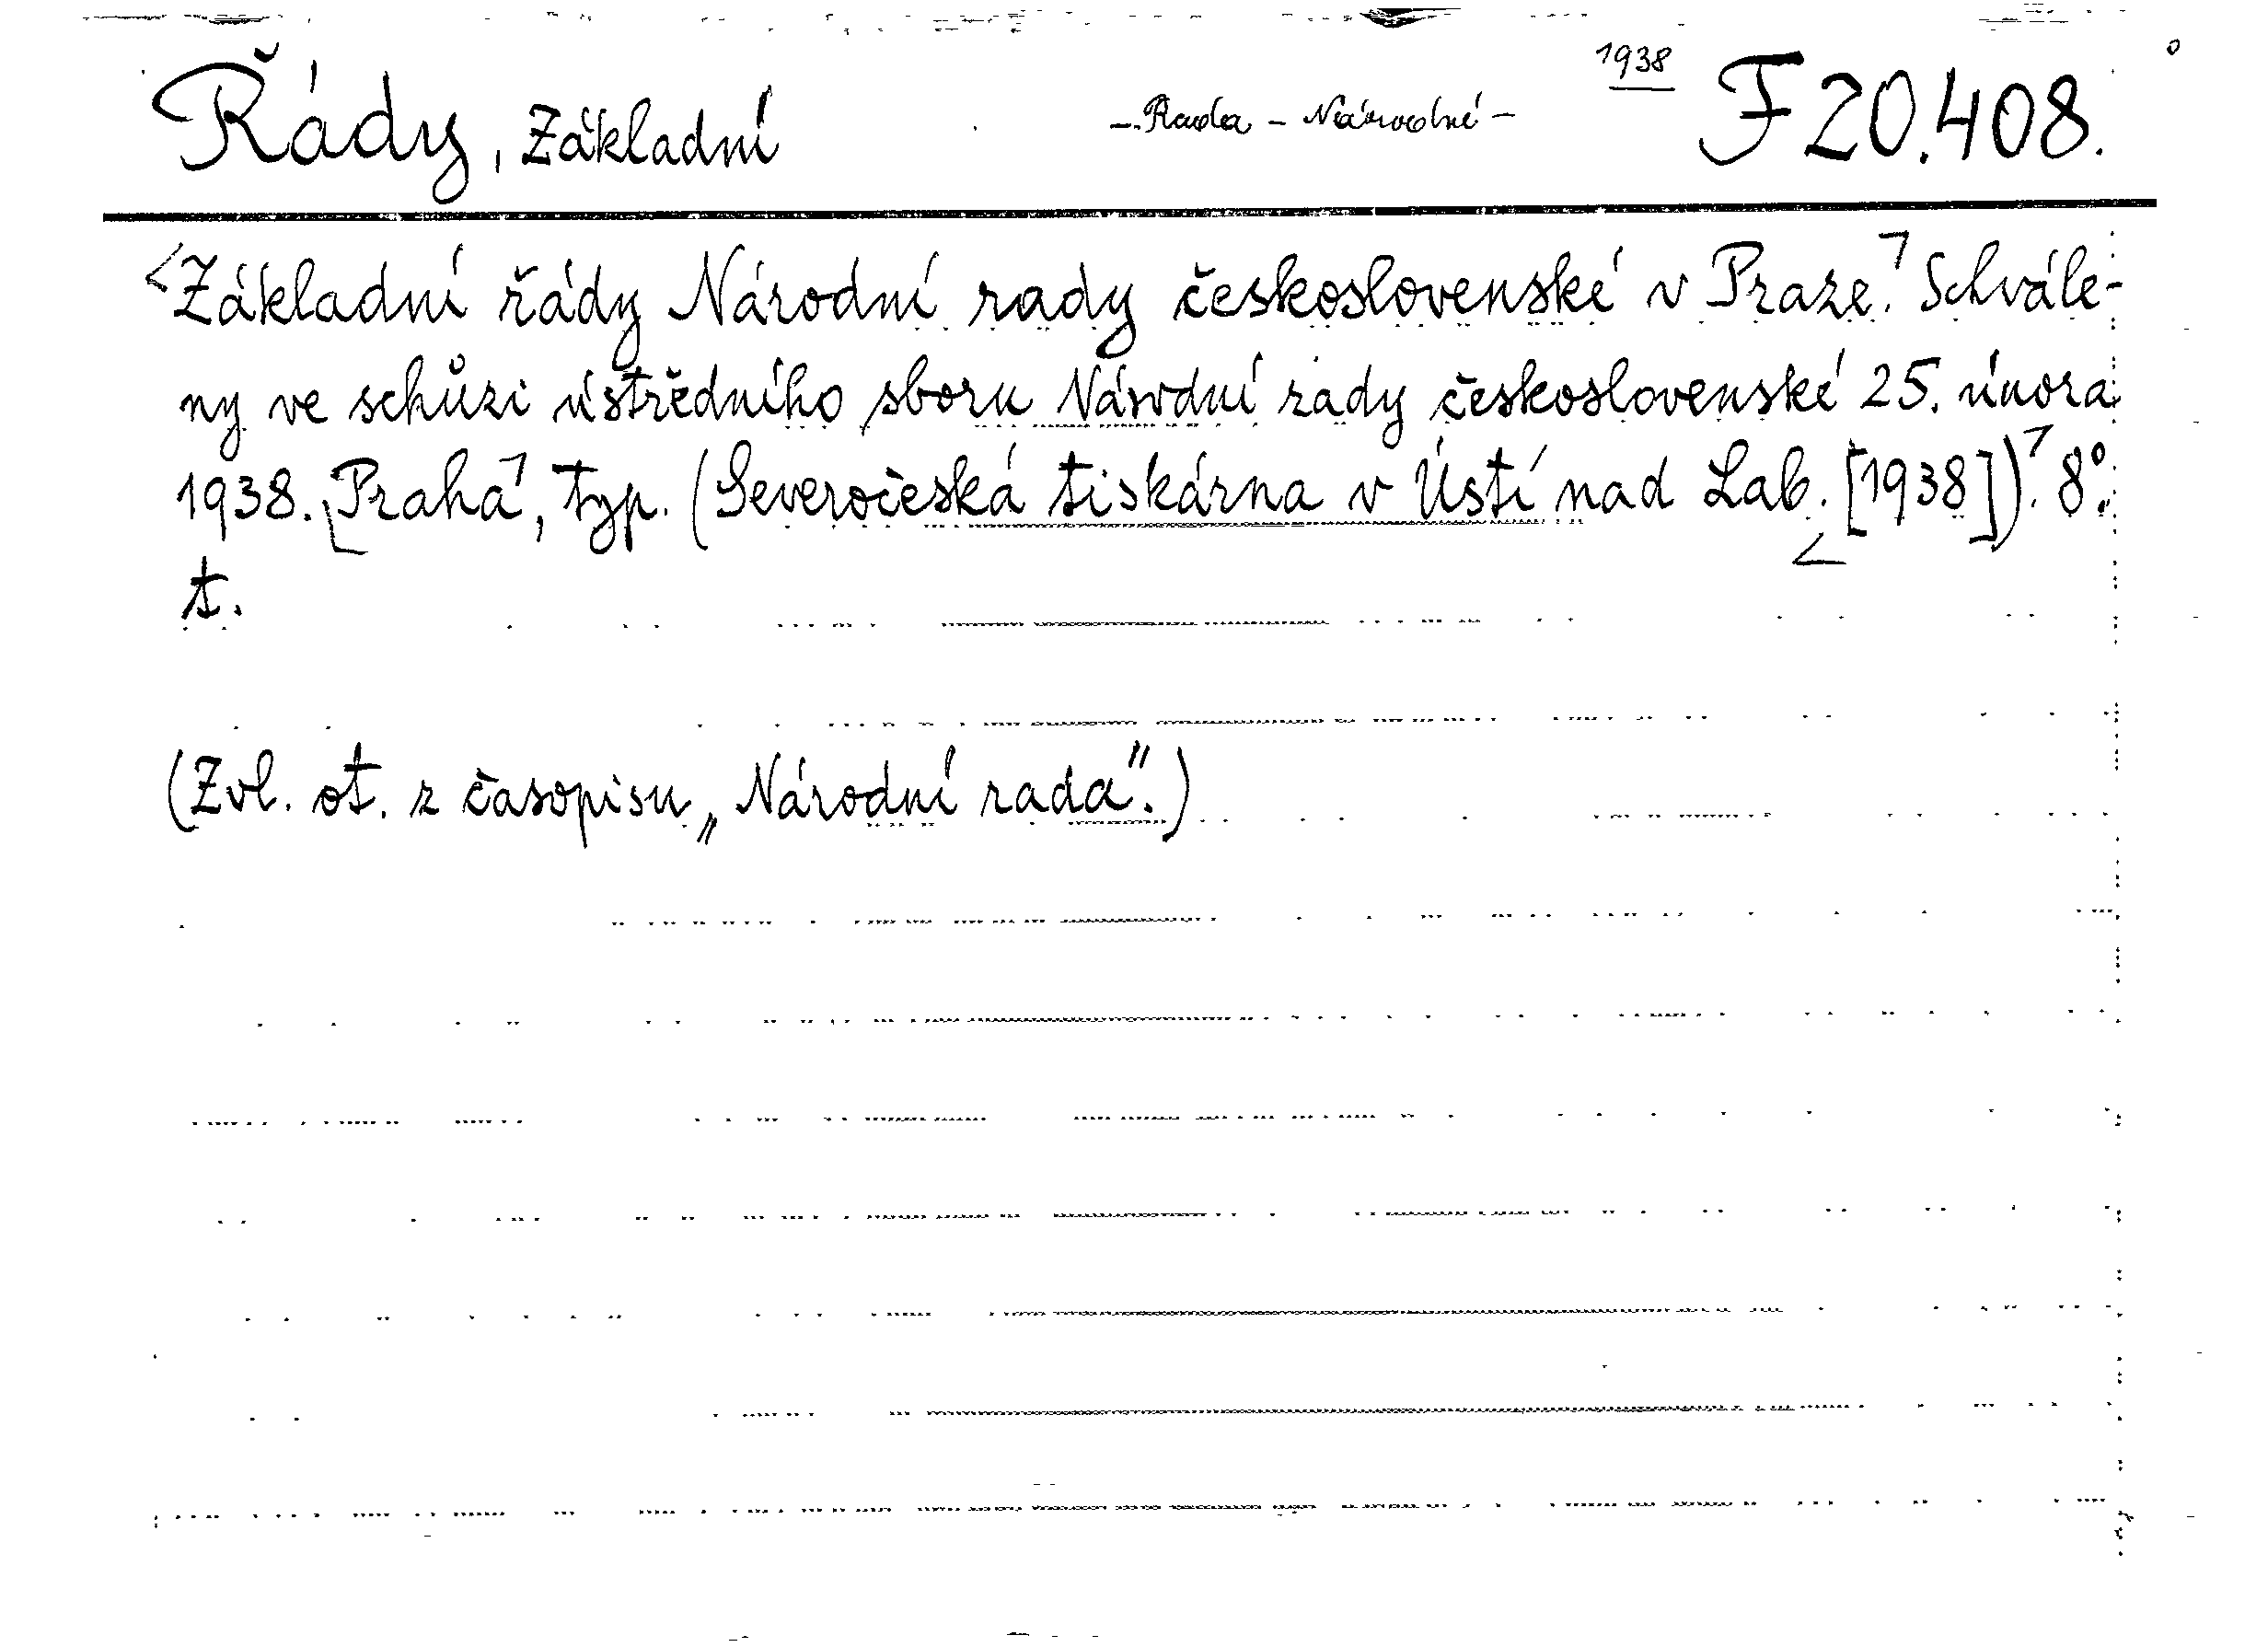 Řády, Základní - Rada - Národní - 1938 F 20.408.
Základní řády Národní rady československé v Praze. Schvále-
ny ve schůzi ústředního sboru Národní rady československé 25. února
1938. Praha, typ. (Severočeská tiskárna v Ústí nad Lab. [1938]). 8°.
t.
(Zvl. ot. z časopisu „Národní rada".)